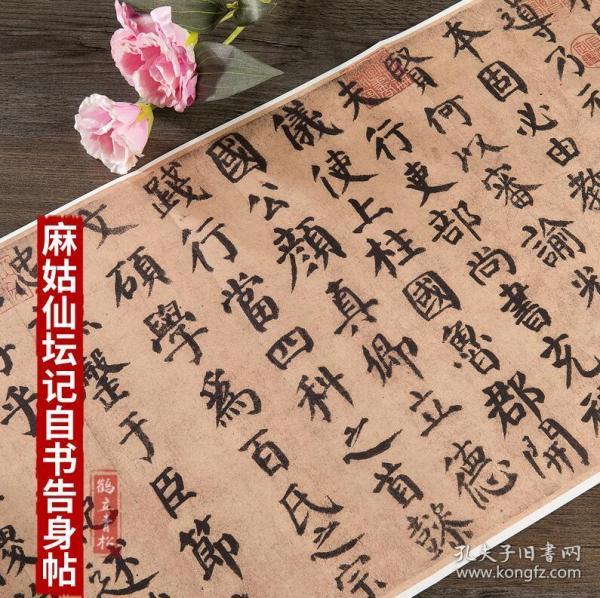 導乃元
本固必由教
賢何以審諭光
夫行吏部尚書充
儀使上柱國魯郡開
國公顏真卿立德
踐行當四科之首懿
文碩學為百氏之宗
罄于臣節
乎
麻姑仙坛记自书告身帖
鹤立青松
孔夫子旧书网
www.kongfz.com